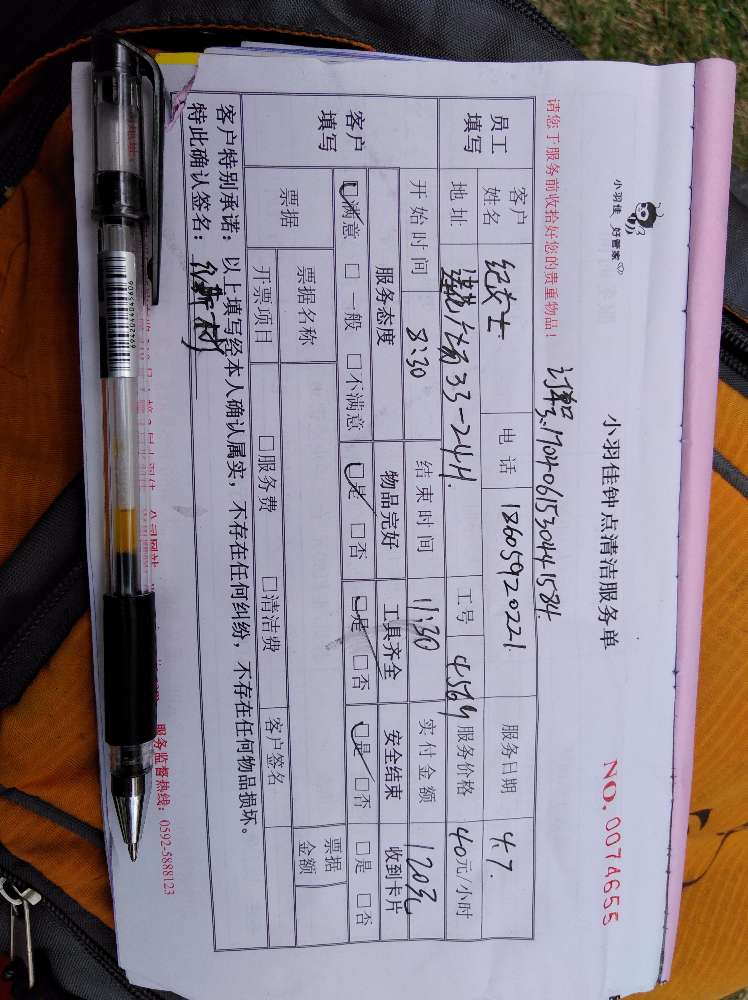 小羽佳 好管家
小羽佳钟点清洁服务单
NO. 0074655
请您于服务前收拾好您的贵重物品！
订单号:1704061530441584
员工填写 客户姓名 纪女士 电话 18605920221 服务日期 4.7.
地址 33-24H. 工号 4564 服务价格 40元/小时
开始时间 8:30 结束时间 11:30 实付金额 120元
客户填写 服务态度 物品完好 工具齐全 安全结束 收到卡片
☑满意 □一般 □不满意 ☑是 □否 ☑是 □否 ☑是 □否 □是 □否
票据 票据名称 票据金额
开票项目 □服务费 □清洁费 客户签名
客户特别承诺：以上填写经本人确认属实，不存在任何纠纷，不存在任何物品损坏。
特此确认签名：
服务监督热线：0592-5888123
6942204404356069